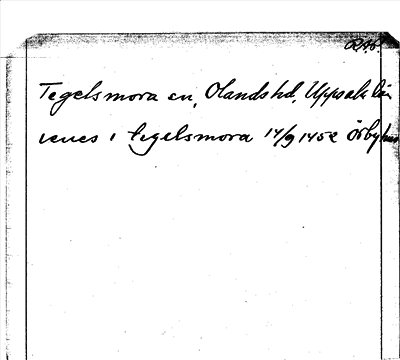 RAp.
Tegelsmora sn, Olands hd, Uppsala län
i tegelsmora 14/9 1452 Örbyhus